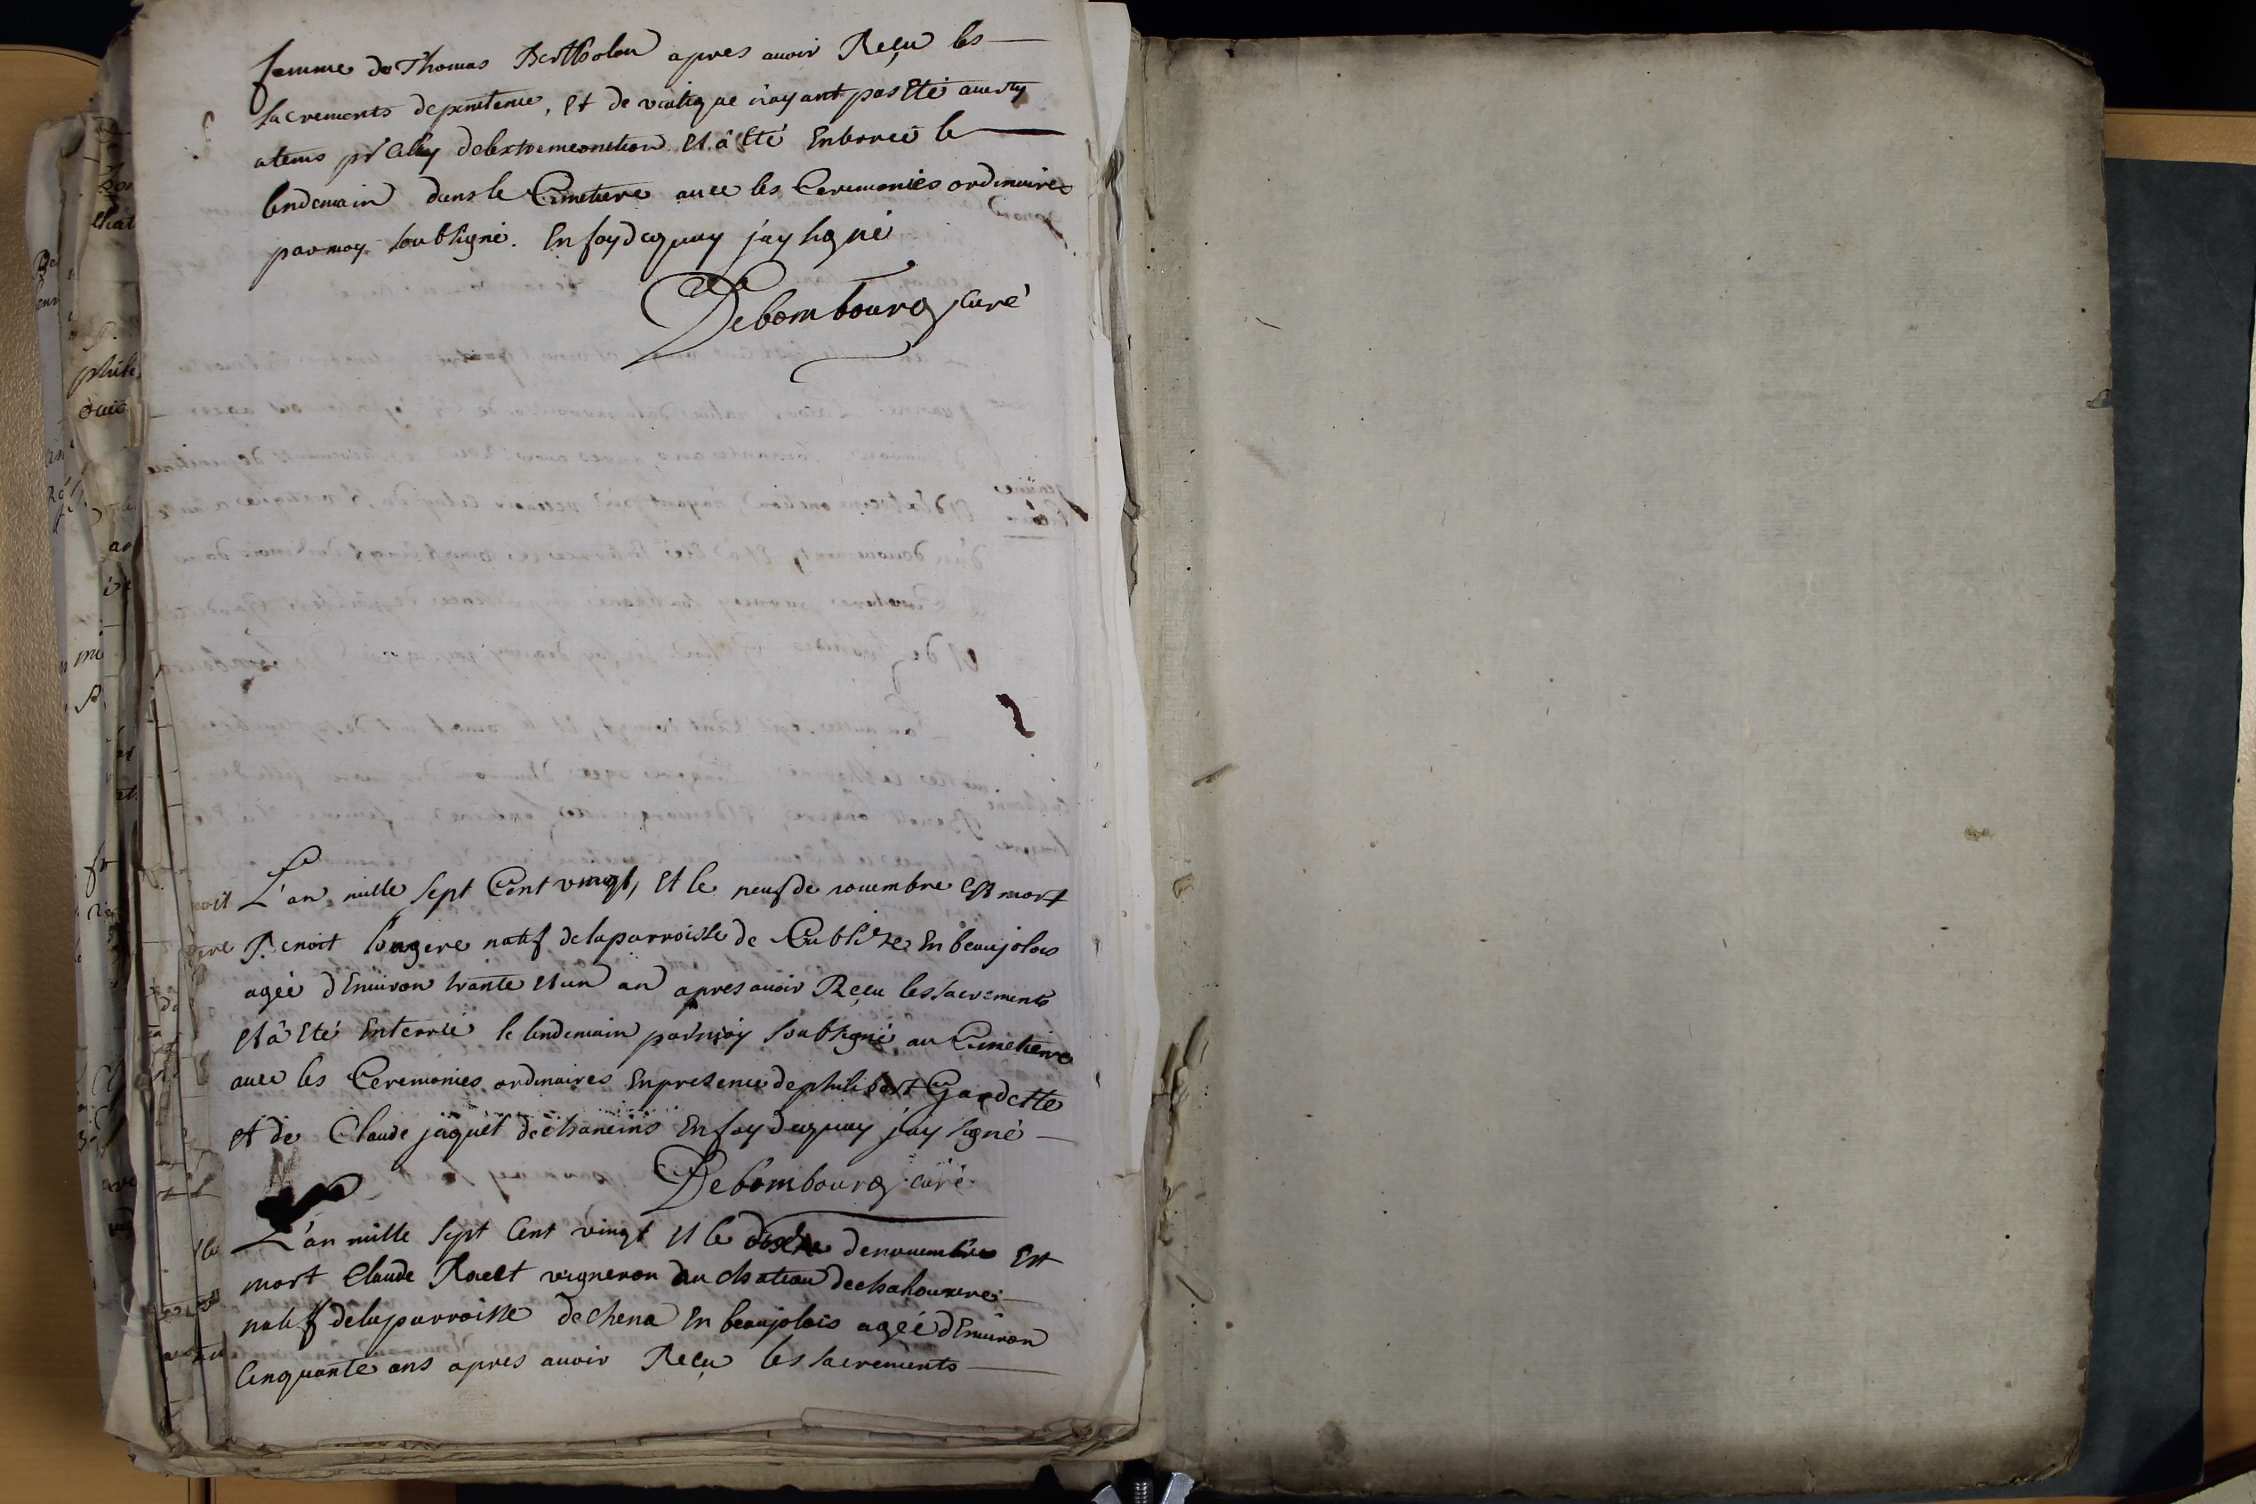 femme de Thomas Bertholon apres auoir Reçu les
sacrements de penitence, et de viatique n'ayant pas Eté auerty
a tems pr Celuy de lextremeonction Et â Eté Enterrée le
lendemain dans le Cimetiere auec les Ceremonies ordinaires
par moy soubsigné. En foy de quoy j'ay signé
Debombourg curé
L'an mille sept Cent vingt, Et le neuf de nouembre Est mort
Benoit longere natif de la parroisse de Cublize En beaujolois
agéé d'Enuiron trante et un an apres auoir Reçu les sacrements
Et â Eté Enterrée le lendemain par moy soubsigné au Cimetiere
auec les Ceremonies ordinaires En presence de philibert Gardette
et de Claude jaquet de chaneins En foy de quoy j'ay signé
Debombourg curé
L'an mille sept Cent vingt et le de nouembre Est
mort Claude vigneron du chateau de
natif de la parroisse de En beaujolois agéé d'Enuiron
Cinquante ans apres auoir Reçu les sacrements